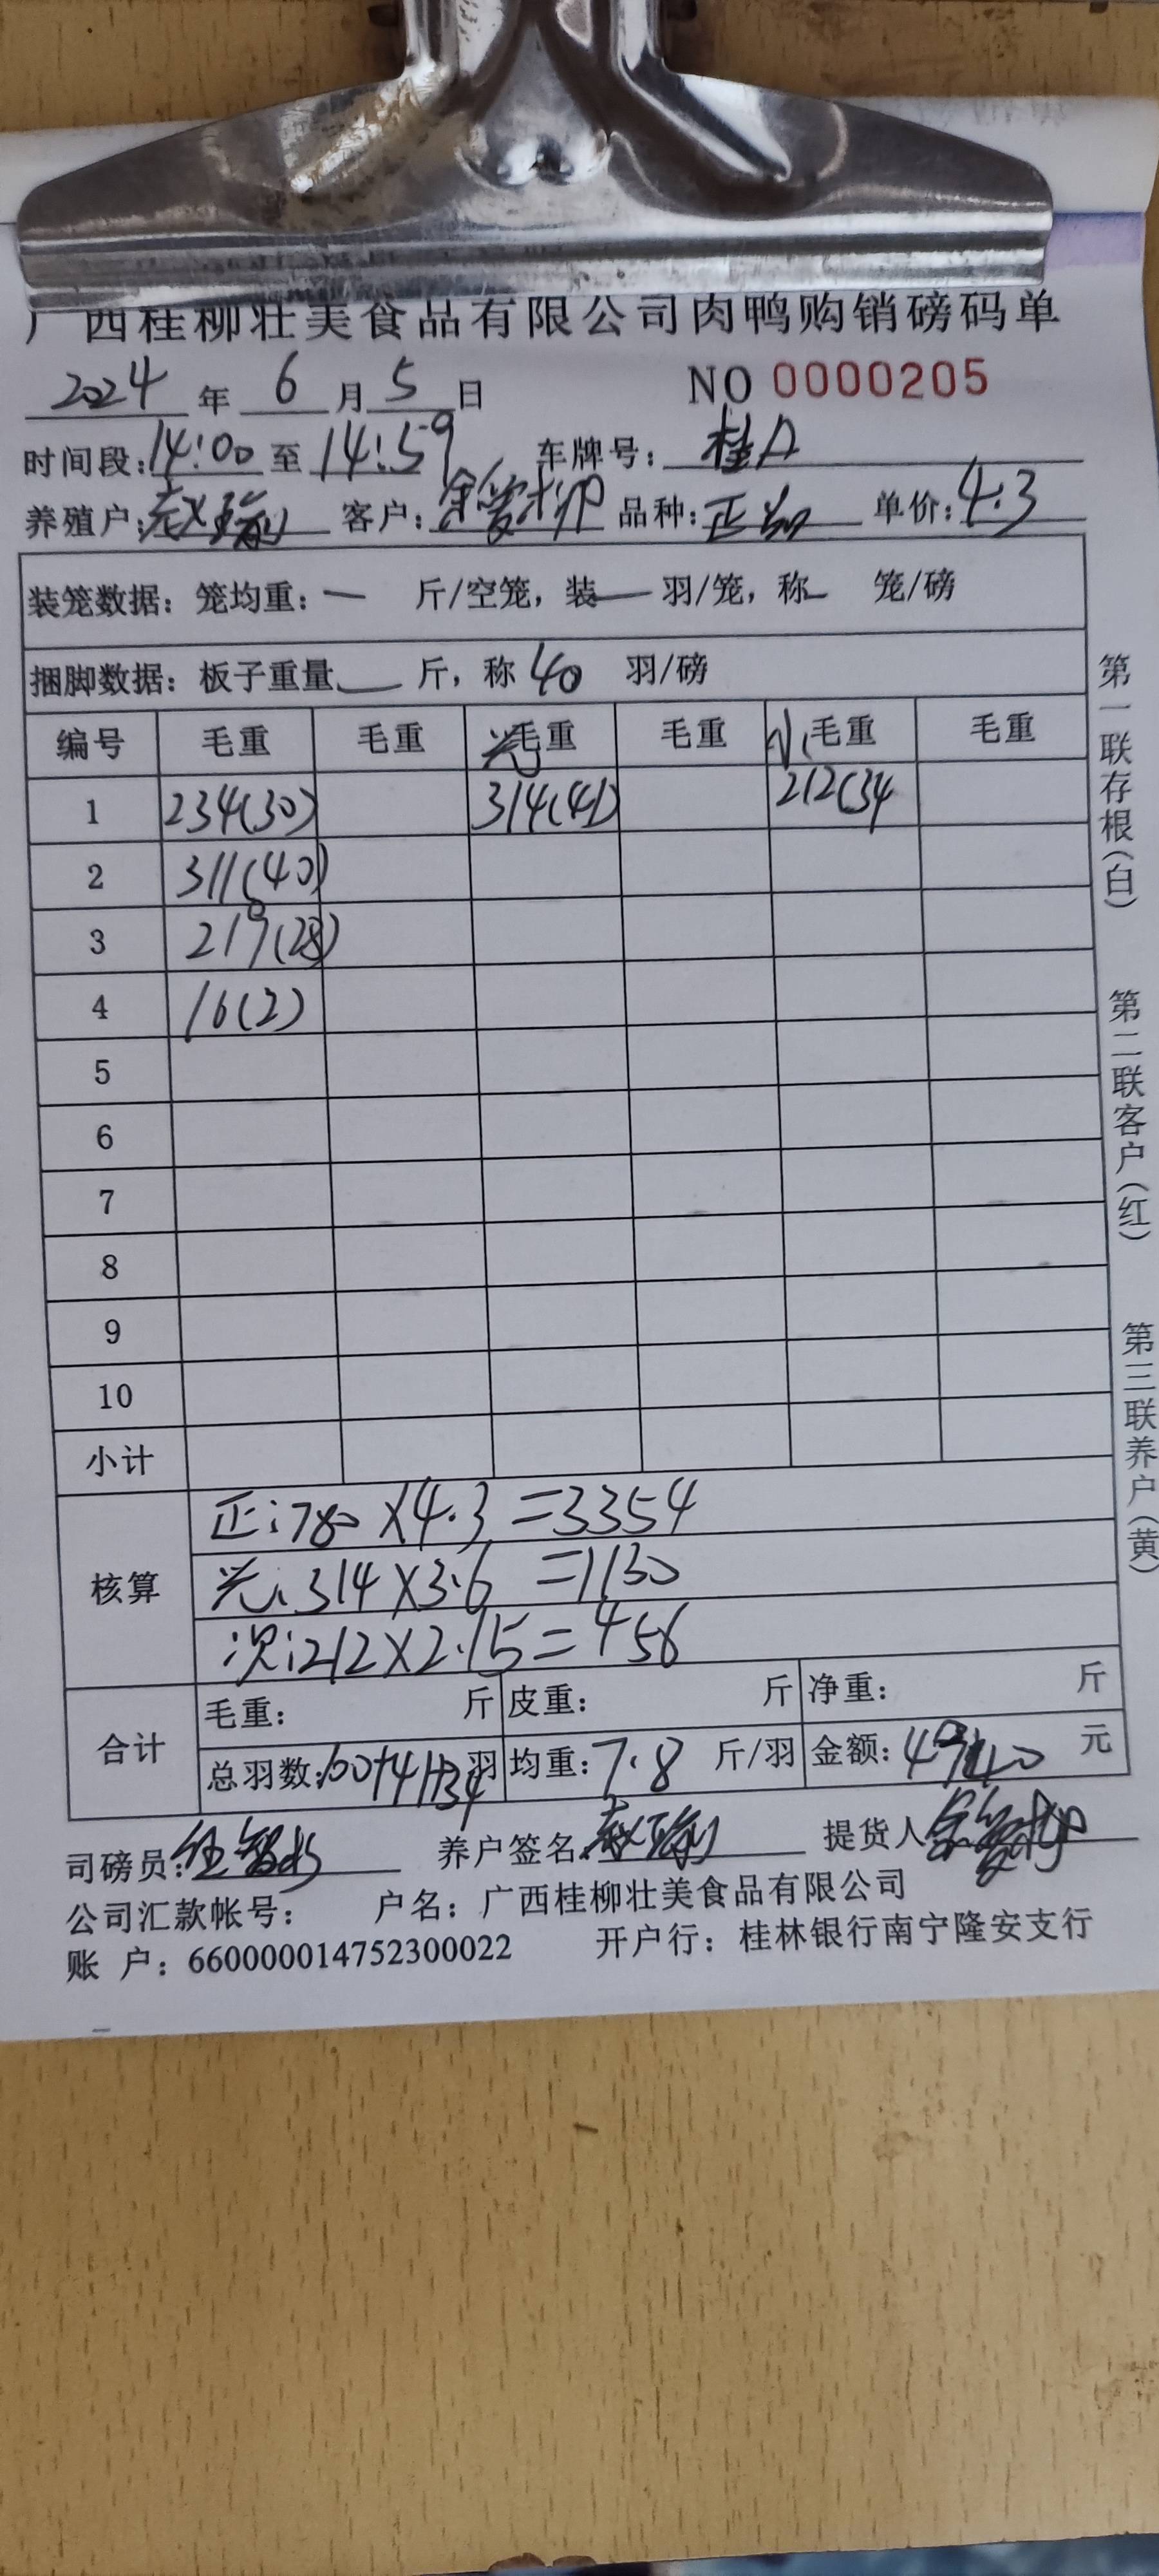 广西桂柳壮美食品有限公司肉鸭购销磅码单
2024 年 6 月 5 日 NO 0000205
时间段:14:00 至 14:59 车牌号: 桂A
养殖户: 客户: 品种:正品 单价:4.3
装笼数据: 笼均重:— 斤/空笼, 装— 羽/笼, 称— 笼/磅
捆脚数据: 板子重量— 斤, 称 40 羽/磅
编号 毛重 毛重 光毛重 毛重 小毛重 毛重
1 234(30) 314(41) 212(34
2 311(40)
3 219(28)
4 16(2)
5
6
7
8
9
10
小计
核算
正:780×4.3=3354
光:314×3.6=1130
次:212×2.15=456
合计
毛重: 斤 皮重: 斤 净重: 斤
总羽数:100+41+34羽 均重:7.8 斤/羽 金额:4940 元
司磅员: 养户签名: 提货人
公司汇款帐号: 户名: 广西桂柳壮美食品有限公司
账 户: 660000014752300022 开户行: 桂林银行南宁隆安支行
第一联存根(白) 第二联客户(红) 第三联养户(黄)